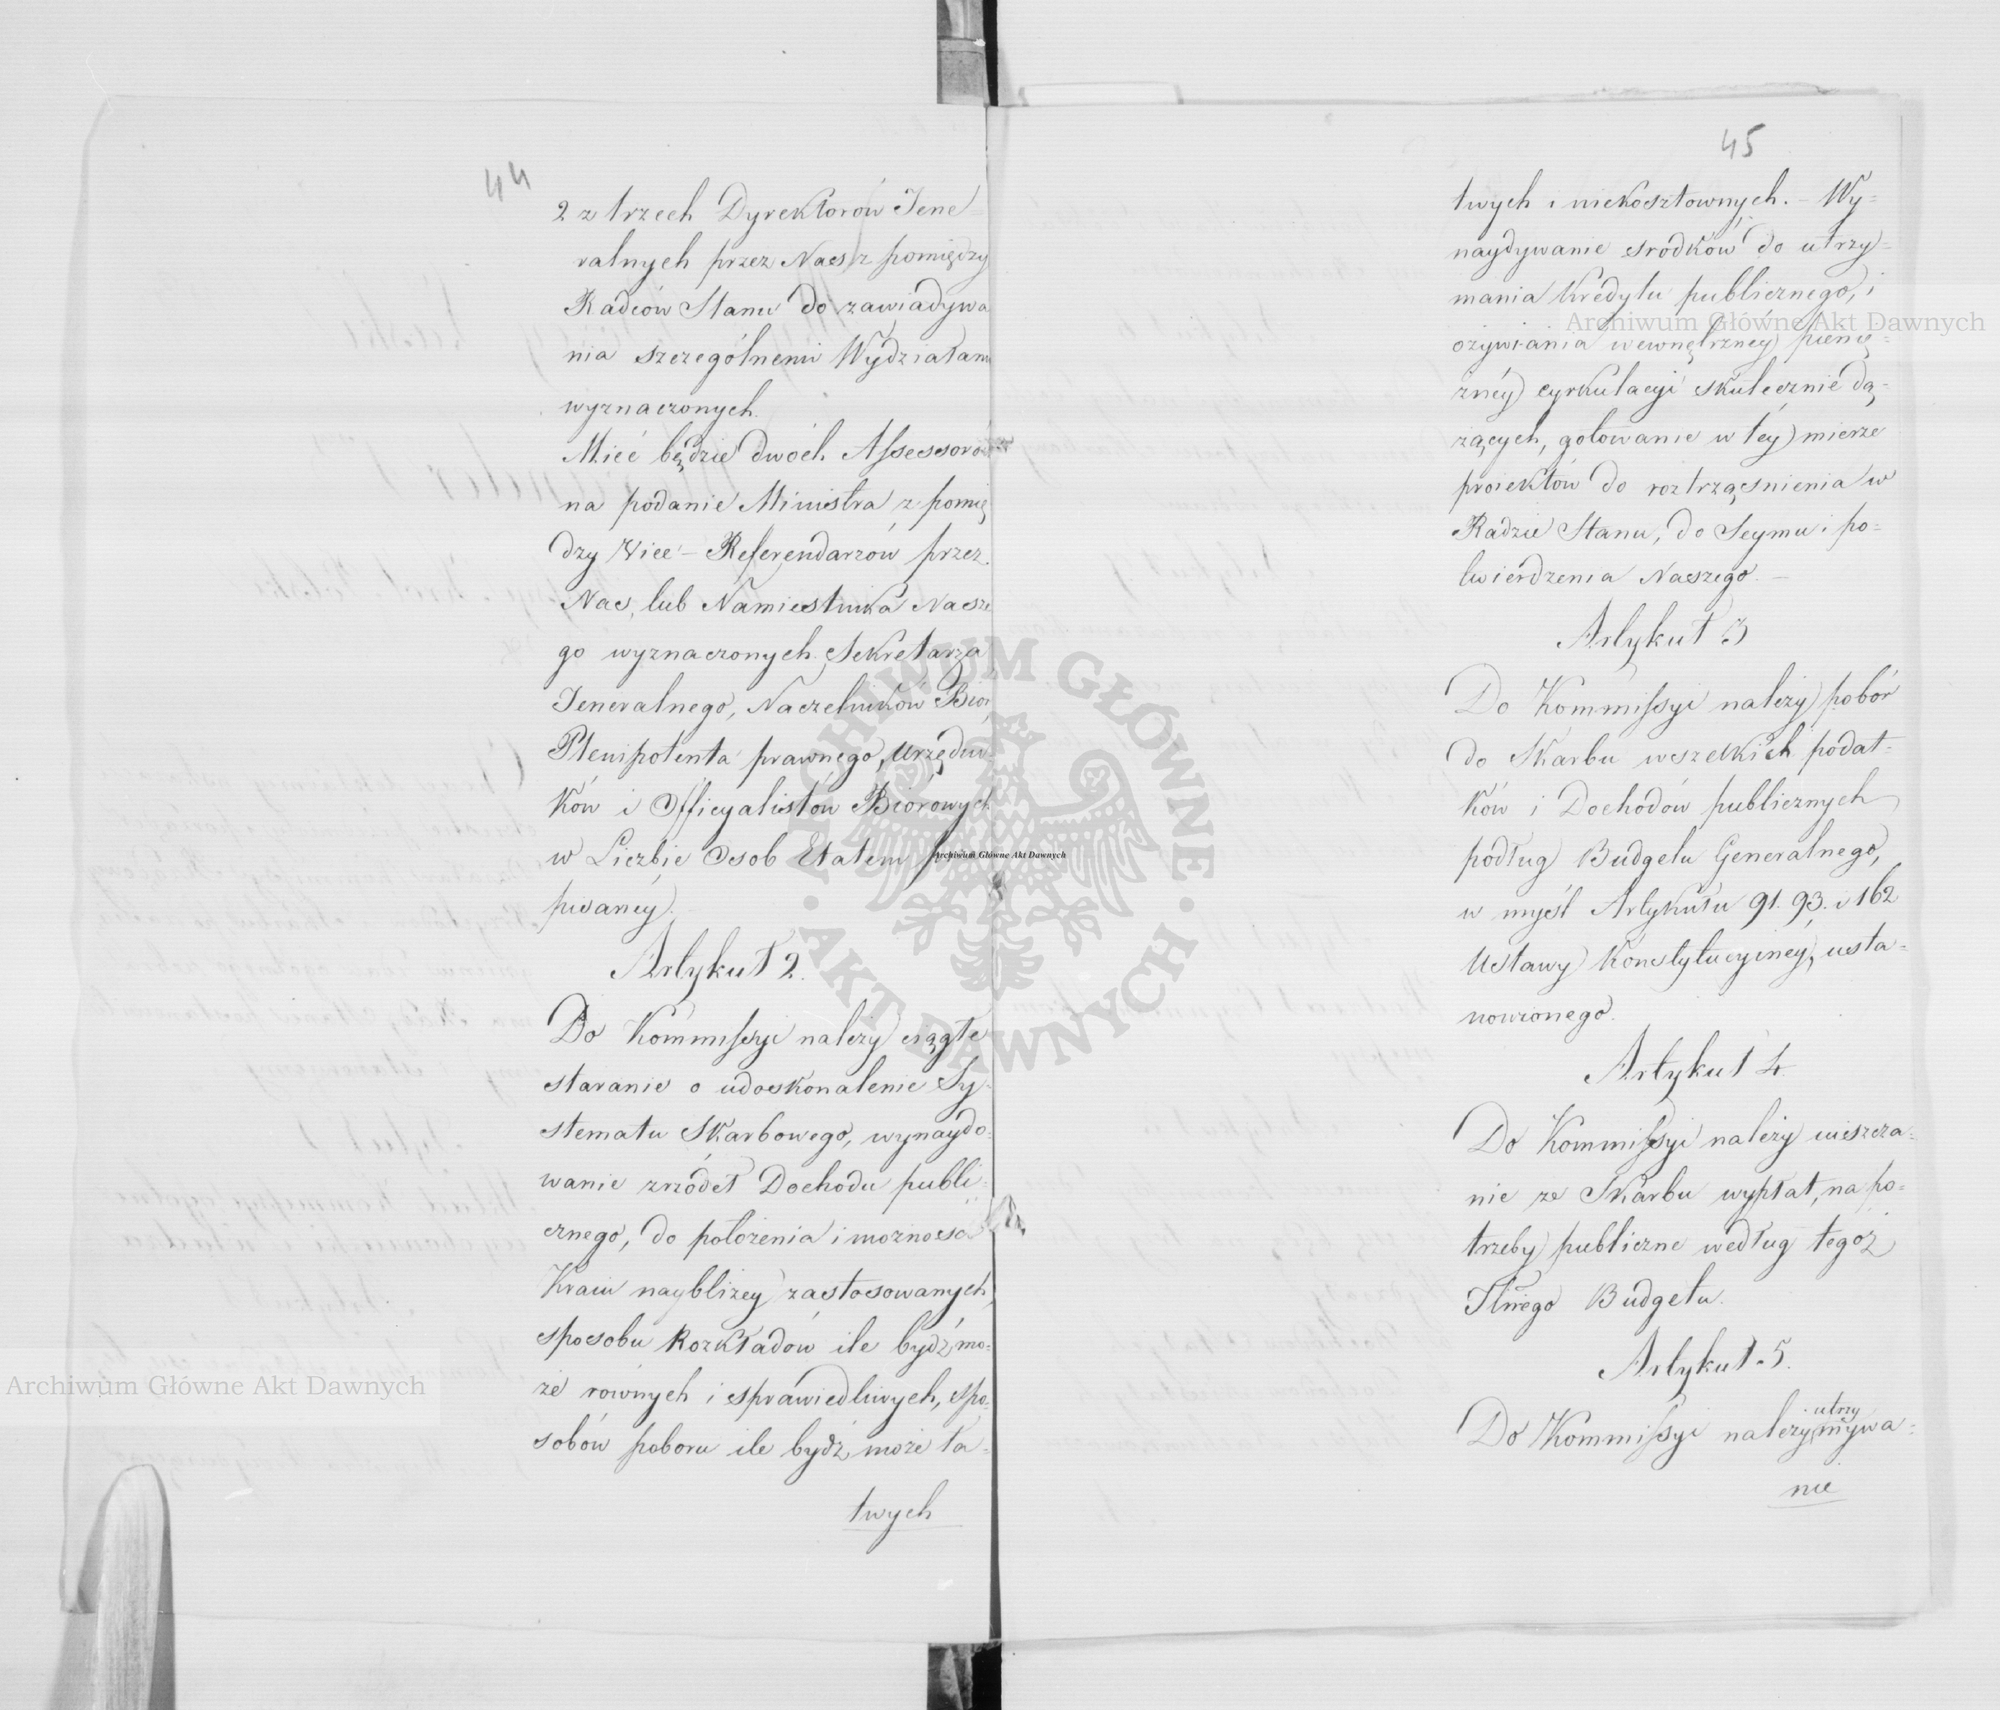 44
2 z trzech Dyrektorów Jene=
ralnych przez Nas z pomiędzy
Radców Stanu do zawiadywa
nia szczególnemi Wydziałami
wyznaczonych.
Mieć będzie dwóch Assessorów
na podanie Ministra z pomię
dzy Vice-Referendarzów przez
Nas, lub Namiestnika Nasze
go wyznaczonych. Sekretarza
Jeneralnego, Naczelników Biór,
Plenipotenta prawnego, Urzędni
ków i Officyalistów Biórowych
w Liczbie Osob Etatem
pisaney.
Artykuł 2.
Do Kommissyi należy ciągłe
staranie o udoskonalenie Sy-
stematu Skarbowego, wynaydo-
wanie zrzódeł Dochodu publi-
cznego, do położenia i możności
Kraiu naybliżey zastosowanych,
sposobu Rozkładów ile bydź mo-
że rownych i sprawiedliwych, spo-
sobów poboru ile bydź może ła-
twych
45
twych i niekosztownych. - Wy=
naydywanie srodków do utrzy=
mania Kredytu publicznego, i
ożywiania wewnętrzney pienię=
żnéy cyrkulacyi skutecznie dą-
żących, gotowanie w tey mierze
proiektów do roztrząsnienia w
Radzie Stanu, do Seymu i po=
twierdzenia Naszego. -
Artykuł 3
Do Kommissyi należy pobór
do Skarbu wszelkich podat-
ków i Dochodów publicznych
podług Budgetu Generalnego,
w myśl Artykułu 91. 93. i 162
Ustawy Konstytucyiney, usta-
nowionego.
Artykuł 4.
Do Kommissyi należy uiszcza-
nie ze Skarbu wypłat, na po-
trzeby publiczne według tegoż
Budgetu.
Artykuł 5.
utrzy
Do Kommissyi należy mywa=
nie
Archiwum Główne Akt Dawnych
Archiwum Główne Akt Dawnych
Archiwum Główne Akt Dawnych
ARCHIWUM GŁÓWNE · AKT DAWNYCH ·